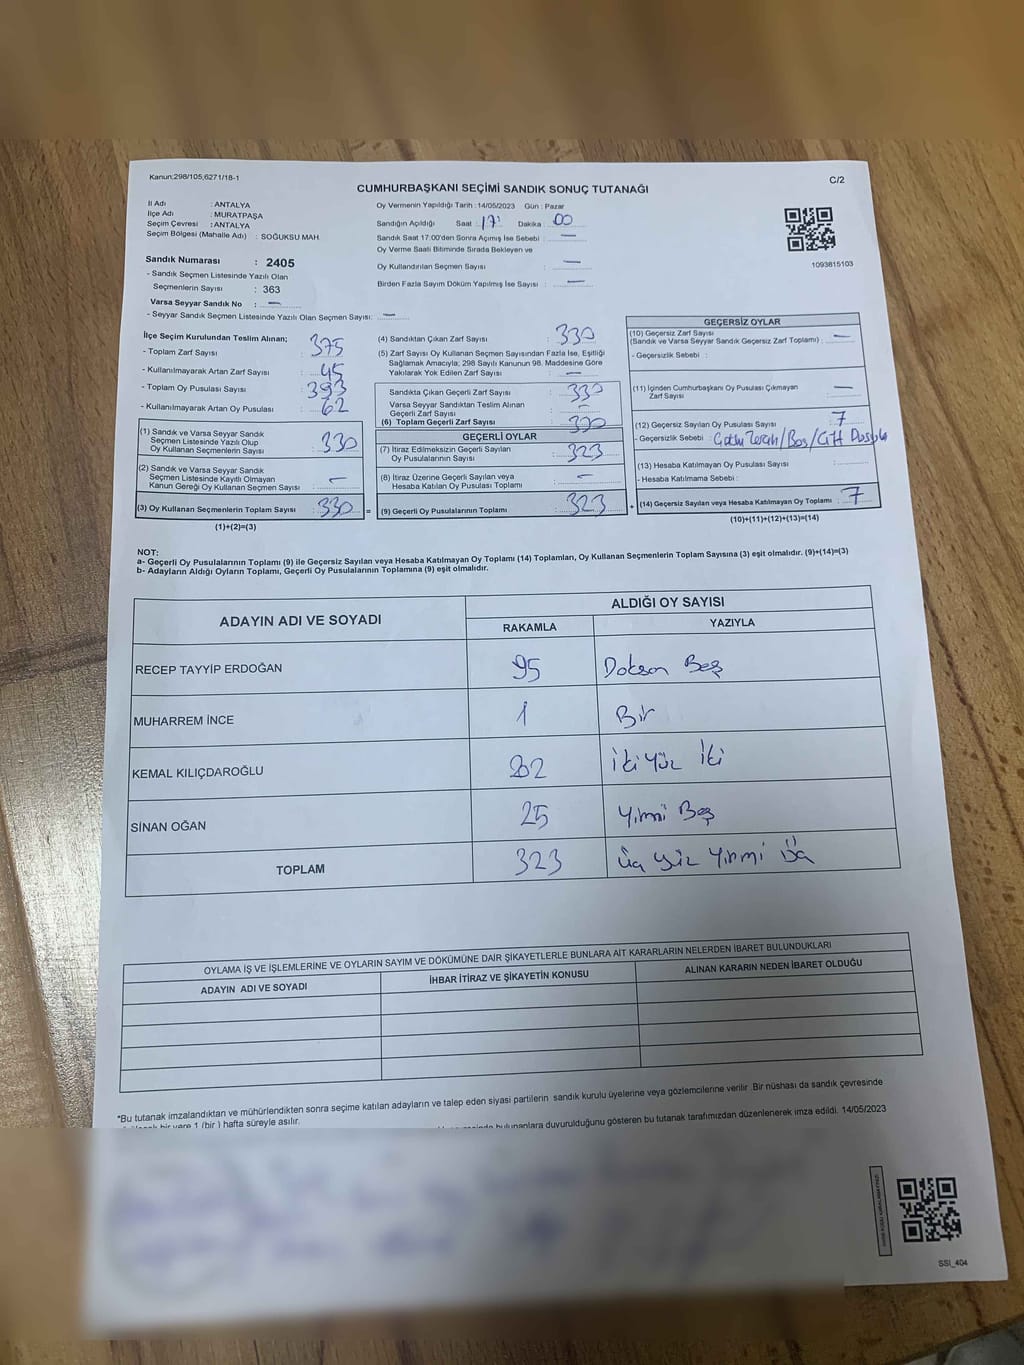 Kanun:298/105,6271/18-1
C/2
CUMHURBAŞKANI SEÇİMİ SANDIK SONUÇ TUTANAĞI
İl Adı : ANTALYA
İlçe Adı : MURATPAŞA
Seçim Çevresi : ANTALYA
Seçim Bölgesi (Mahalle Adı) : SOĞUKSU MAH.
Sandık Numarası : 2405
- Sandık Seçmen Listesinde Yazılı Olan
Seçmenlerin Sayısı : 363
Varsa Seyyar Sandık No : —
- Seyyar Sandık Seçmen Listesinde Yazılı Olan Seçmen Sayısı: —
Oy Vermenin Yapıldığı Tarih : 14/05/2023 Gün : Pazar
Sandığın Açıldığı Saat : 17 Dakika : 00
Sandık Saat 17:00'den Sonra Açımış İse Sebebi : —
Oy Verme Saati Bitiminde Sırada Bekleyen ve
Oy Kullandırılan Seçmen Sayısı : —
Birden Fazla Sayım Döküm Yapılmış İse Sayısı : —
1093815103
İlçe Seçim Kurulundan Teslim Alınan;
- Toplam Zarf Sayısı : 375
- Kullanılmayarak Artan Zarf Sayısı : 45
- Toplam Oy Pusulası Sayısı : 393
- Kullanılmayarak Artan Oy Pusulası : 62
(1) Sandık ve Varsa Seyyar Sandık
Seçmen Listesinde Yazılı Olup
Oy Kullanan Seçmenlerin Sayısı : 330
(2) Sandık ve Varsa Seyyar Sandık
Seçmen Listesinde Kayıtlı Olmayan
Kanun Gereği Oy Kullanan Seçmen Sayısı : —
(3) Oy Kullanan Seçmenlerin Toplam Sayısı : 330 =
(1)+(2)=(3)
(4) Sandıktan Çıkan Zarf Sayısı : 330
(5) Zarf Sayısı Oy Kullanan Seçmen Sayısından Fazla İse, Eşitliği
Sağlamak Amacıyla; 298 Sayılı Kanunun 98. Maddesine Göre
Yakılarak Yok Edilen Zarf Sayısı : —
Sandıkta Çıkan Geçerli Zarf Sayısı : 330
Varsa Seyyar Sandıktan Teslim Alınan
Geçerli Zarf Sayısı : —
(6) Toplam Geçerli Zarf Sayısı : 330
GEÇERLİ OYLAR
(7) İtiraz Edilmeksizin Geçerli Sayılan
Oy Pusulalarının Sayısı : 323
(8) İtiraz Üzerine Geçerli Sayılan veya
Hesaba Katılan Oy Pusulası Toplamı : —
(9) Geçerli Oy Pusulalarının Toplamı : 323 +
GEÇERSİZ OYLAR
(10) Geçersiz Zarf Sayısı
(Sandık ve Varsa Seyyar Sandık Geçersiz Zarf Toplamı) : —
- Geçersizlik Sebebi :
(11) İçinden Cumhurbaşkanı Oy Pusulası Çıkmayan
Zarf Sayısı : —
(12) Geçersiz Sayılan Oy Pusulası Sayısı : 7
- Geçersizlik Sebebi : /Boş/Çift Pusula
(13) Hesaba Katılmayan Oy Pusulası Sayısı :
- Hesaba Katılmama Sebebi :
(14) Geçersiz Sayılan veya Hesaba Katılmayan Oy Toplamı : 7
(10)+(11)+(12)+(13)=(14)
NOT:
a- Geçerli Oy Pusulalarının Toplamı (9) ile Geçersiz Sayılan veya Hesaba Katılmayan Oy Toplamı (14) Toplamları, Oy Kullanan Seçmenlerin Toplam Sayısına (3) eşit olmalıdır. (9)+(14)=(3)
b- Adayların Aldığı Oyların Toplamı, Geçerli Oy Pusulalarının Toplamına (9) eşit olmalıdır.
ADAYIN ADI VE SOYADI
ALDIĞI OY SAYISI
RAKAMLA YAZIYLA
RECEP TAYYİP ERDOĞAN 95 Doksan Beş
MUHARREM İNCE 1 Bir
KEMAL KILIÇDAROĞLU 202 İki Yüz İki
SİNAN OĞAN 25 Yirmi Beş
TOPLAM 323 Üç yüz yirmi üç
OYLAMA İŞ VE İŞLEMLERİNE VE OYLARIN SAYIM VE DÖKÜMÜNE DAİR ŞİKAYETLERLE BUNLARA AİT KARARLARIN NELERDEN İBARET BULUNDUKLARI
ADAYIN ADI VE SOYADI İHBAR İTİRAZ VE ŞİKAYETİN KONUSU ALINAN KARARIN NEDEN İBARET OLDUĞU
*Bu tutanak imzalandıktan ve mühürlendikten sonra seçime katılan adayların ve talep eden siyasi partilerin sandık kurulu üyelerine veya gözlemcilerine verilir. Bir nüshası da sandık çevresinde
bir yere 1 (bir) hafta süreyle asılır.
bulunanlara duyurulduğunu gösteren bu tutanak tarafımızdan düzenlenerek imza edildi. 14/05/2023
SSI_404